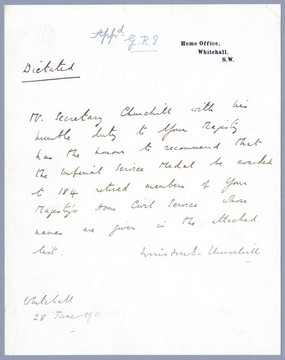 Appd
G.R.I.
Home Office,
Whitehall,
S.W.
Dictated
Mr. Secretary Churchill with his
humble duty to Your Majesty
has the honour to recommend that
the Imperial Service Medal be awarded
to 184 retired members of Your
Majesty's Home Civil Service whose
names are given in the attached
list.
Winston S. Churchill
Whitehall
28 June 1911